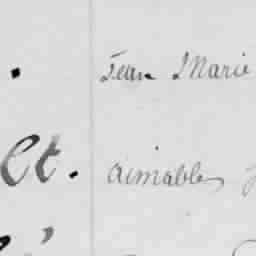 Jean Marie
et. aimable